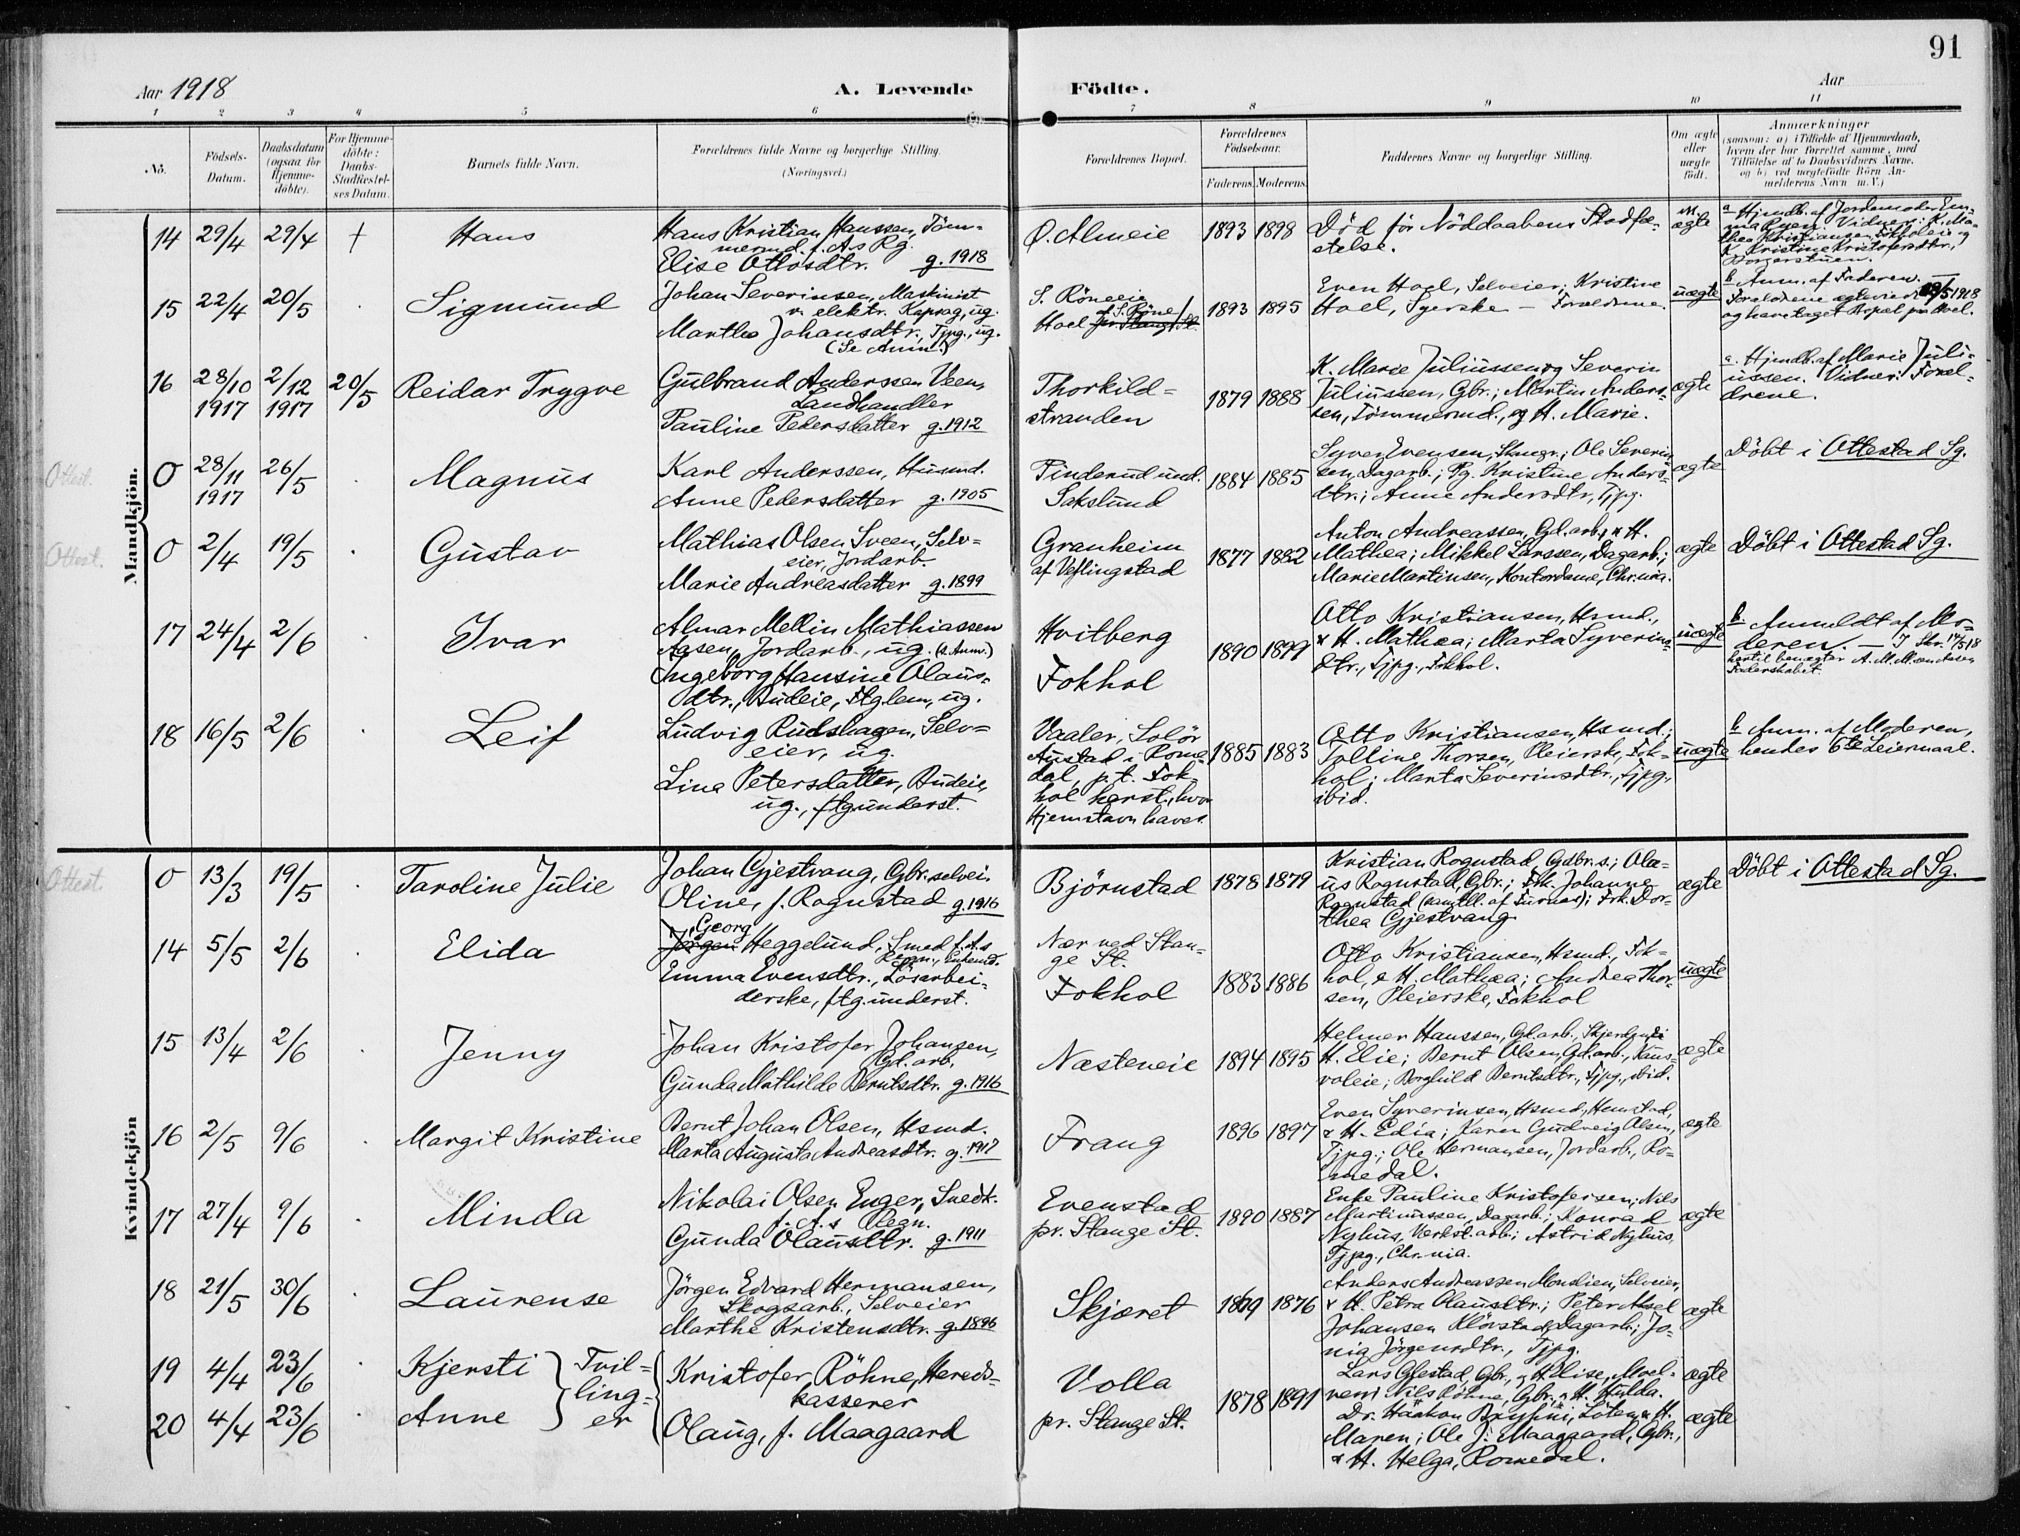 91
Aar 1918
A. Levende Födte.
Aar
1 2 3 4 5 6 7 8 9 10 11
No.
Födsels-Datum.
Daabsdatum (ogsaa for Hjemme-döbte).
For Hjemme-döbte: Daabs-Stadfæstel-ses Datum.
Barnets fulde Navn.
Forældrenes fulde Navne og borgerlige Stilling.
(Næringsvei.)
Forældrenes Bopæl.
Forældrenes Födselsaar.
Faderens. Moderens.
Faddernes Navne og borgerlige Stilling.
Om ægte eller uægte födt.
Anmærkninger
(saasom: a) i Tilfælde af Hjemmedaab,
hvem der har forrettet samme, med
Tilföielse af to Daabsvidners Navne.
og b) ved uægtefödte Börn An-
melderens Navn m. V.)
Mandkjön.
14 29/4 29/4 † Hans
Hans Kristian Hanssen, Töm-
mermd. f. A.s Rg.
Elise Ottosdtr. g. 1918
Ø. Almeie 1893 1898
Död för Nöddaabens Stadfæ-
stelse.
ægte
a Hjmdb. af Jordemoder Em-
ma Ryen. Vidner: K. Ma-
thea Kristiansen, og
K. Kristine Kristofersdtr,
Borgerstuen.
15 22/4 20/5 Sigmund
Johan Severinsen, Maskinist
v. elektr. Kaprag, ug.
Marthe Johansdtr., Tjpg., ug.
(Se Anm.)
S. Röneeie
Hoel af S. Röne
1893 1895
Even Hoel, Selveier; Kristine
Hoel, Syerske — Forældrene.
uægte
b Anm. af Faderen. —
Forældrene ægteviede 1918
og have taget Bopæl paa Hoel.
16 28/10 1917 2/12 1917 20/5 Reidar Trygve
Gulbrand Anderssen Veen,
Landhandler
Pauline Pedersdatter g. 1912
Thorkild=
stranden
1879 1888
K. Marie Juliussen og Severin
Juliussen, Gbr.; Martin Anders-
sen, Tömmermd., og H. Marie.
ægte
a. Hjmdb. af Marie Juli-
ussen. Vidner: Foræl-
drene.
Ottest. 0 28/11 1917 26/5 Magnus
Karl Anderssen, Husmd.
Anne Pedersdatter g. 1905
Finderud und.
Sakslund
1884 1885
Syver Evensen, Skogr.; Ole Severin
sen, Dagarb.; Pg. Kristine Anders-
dtr.; Anne Andersdtr., Tjpg.
ægte
Döbt i Ottestad Sg.
Ottest. 0 2/4 19/5 Gustav
Mathias Olsen Sveen, Selv=
eier, Jordarb.
Marie Andreasdatter g. 1899
Granheim
af Veflingstad
1877 1882
Anton Andreassen, Gd.arb., & H.
Mathea; Mikkel Larssen, Dagarb.;
Marie Martinsen, Kontordame, Chr.nia.
ægte
Döbt i Ottestad Sg.
17 24/4 2/6 Ivar
Almar Mellin Mathiassen
Aasen, Jordarb., ug. (s. Anm.)
Ingeborg Hansine Olaus-
dtr., Budeie, ug.
Hvitberg
Fokhol
1890 1899
Otto Kristiansen, Hsmd.,
& H. Mathea; Marta Syverins-
dtr., Tjpg., Fokhol.
uægte
b. Anmeldt af Mo-
deren. — I Skr. 14/5 18
hertil benægter A. M. M.sen Aasen
Faderskabet.
18 16/5 2/6 Leif
Ludvig Rudshagen, Selv=
eier, ug.
Lina Petersdatter, Budeie,
ug., ftgunderst.
Vaaler, Solör
Austad i Rome-
dal, p. t. Fok-
hol herst., hvor
Hjemstavn haves.
1885 1883
Otto Kristiansen, Hsmd.;
Tolline Thorsen, Pleierske, Fok-
hol; Marta Severinsdtr., Tjpg.,
ibid.
uægte
b Anm. af Moderen,
hendes 6te Leiermaal.
Kvindekjön
Ottest. 0 13/3 19/5 Taroline Julie
Johan Gjestvang, Gbr. selvei.
Oline, f. Rognstad g. 1916
Björnstad 1878 1879
Kristian Rognstad, Gdbr.s.; Ola-
us Rognstad, Gbr.; Frk. Johanne
Rognstad (samtl. af Furnes); Frk. Dor-
thea Gjestvang
ægte
Döbt i Ottestad Sg.
14 5/5 2/6 Elida
Georg
Jörgen Heggelund, Smed f. A.s
Regn., Enkemd.
Emma Evensdtr., Lösarbei-
derske, ftg. underst.
Nær ved Stan-
ge St.
Fokhol
1883 1886
Otto Kristiansen, Hsmd., Fok-
hol, & H. Mathea; Andrea Thor-
sen, Pleierske, Fokhol
uægte
15 13/4 2/6 Jenny
Johan Kristofer Johansen,
Gd. arb.
Gunda Mathilde Berntsdtr. g. 1916
Næsteneie 1894 1895
Helmer Hanssen, Gd.arb.,
H. Elie; Bernt Olsen, Gd.arb., Kaus-
voleie; Borghild Berntsdtr., Tjpg., ibid.
ægte
16 2/5 9/6 Margit Kristine
Bernt Johan Olsen, Hsmd.
Marta Augusta Andreasdtr. g. 1917
Frang 1896 1897
Even Syverinsen, Hsmd., Hemstad,
& H. Edia; Karen Gudveig Olsen,
Tjpg.; Ole Hermansen, Jordarb., Ro-
medal.
ægte
17 27/4 9/6 Minda
Nikolai Olsen Enger, Snedk.
f. A.s Regn.
Gunda Olausdtr. g. 1911
Evenstad
pr. Stange St.
1890 1887
Enke Pauline Kristofersen; Nils
Martinussen, Dagarb.; Konrad
Nyhus, Værkst.arb.; Astrid Nyhus,
Tjpg., Chr.nia.
ægte
18 21/5 30/6 Laurense
Jörgen Edvard Hermansen,
Skogsarb., Selveier
Marthe Kristensdtr. g. 1896
Skjæret 1869 1876
Anders Andreassen Monslien, Selveier,
& H. Petra Olausdtr.; Peter Aksel
Johansen Klövstad, Dagarb.; Jo-
nia Jörgensdtr., Tjpg.
ægte
19 4/4 23/6 Kjersti
20 4/4 23/6 Anne
Tvil=
ling=
er
Kristofer Röhne, Hereds-
kasserer
Olaug, f. Maagaard
Volla
pr. Stange St.
1878 1891
Lars Gjestad, Gbr., & H. Elise,
Nils Röhne, Gbr., & H. Hulda.
Dr. Haakon Bryhni, Löten & H.
Maren; Ole J. Maagaard, Gbr.,
& H. Helga, Romedal.
ægte
ægte